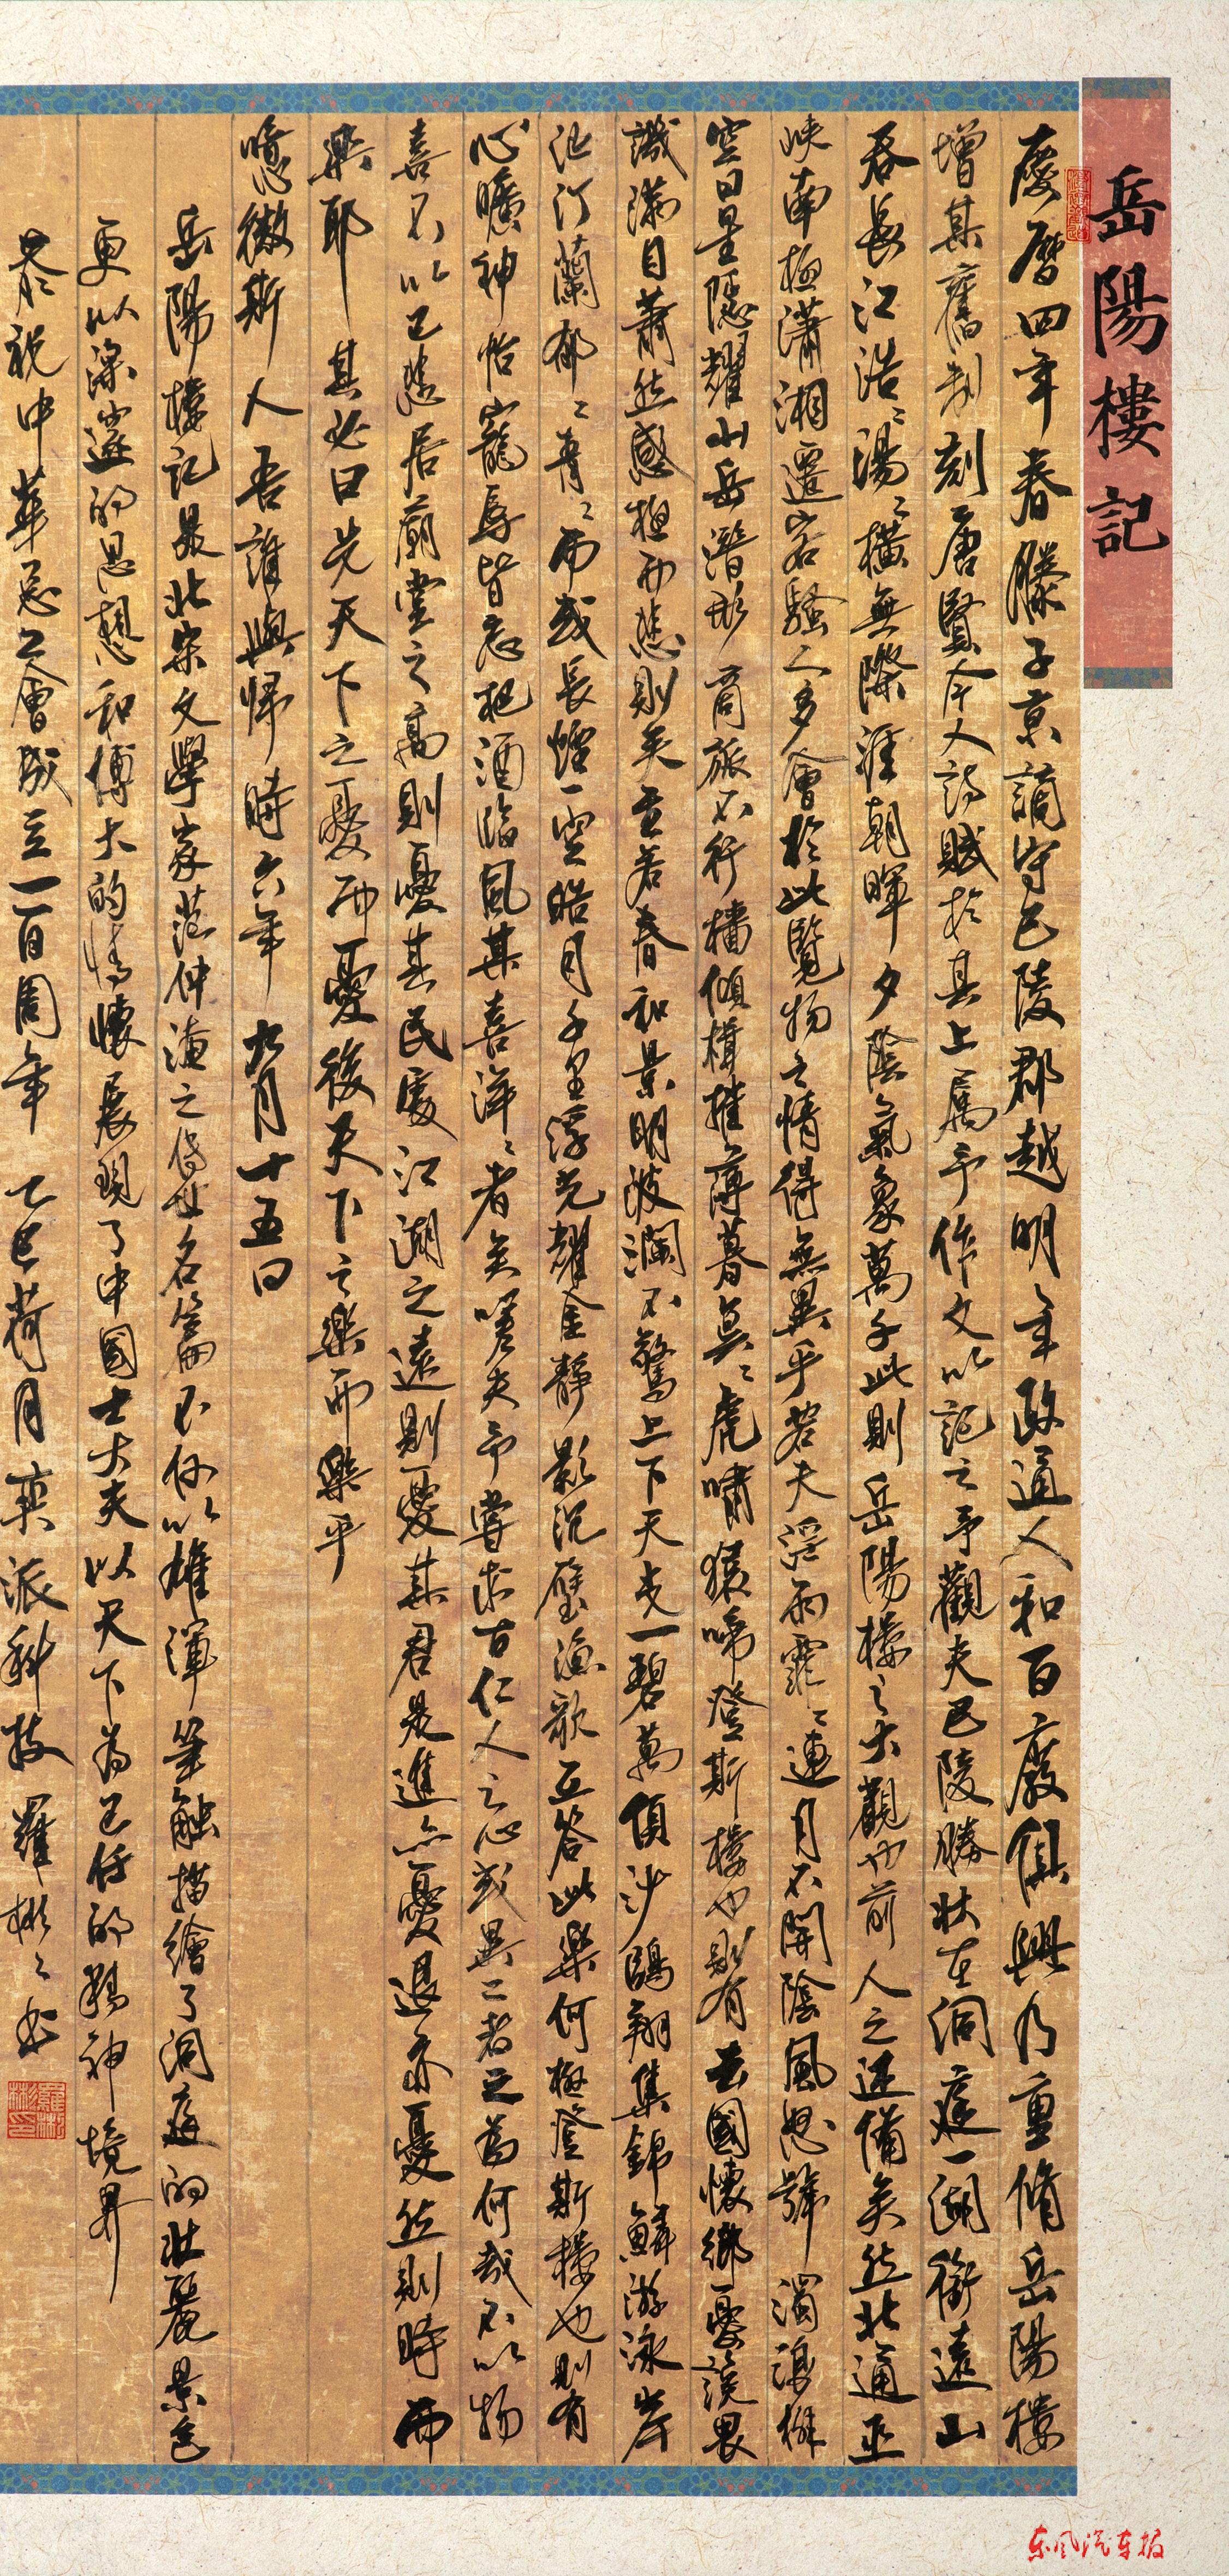 岳陽樓記
慶曆四年春滕子京謫守巴陵郡越明年政通人和百廢俱興乃重脩岳陽樓
增其舊制刻唐賢今人詩賦於其上屬予作文以記之予觀夫巴陵勝狀在洞庭一湖銜遠山
吞長江浩〻湯〻橫無際涯朝暉夕陰氣象萬千此則岳陽樓之大觀也前人之述備矣然北通巫
峽南極瀟湘遷客騷人多會於此覽物之情得無異乎若夫淫雨霏〻連月不開陰風怒號濁浪排
空日星隱耀山岳潛形商旅不行檣傾楫摧薄暮冥〻虎嘯猿啼登斯樓也則有去國懷鄉憂讒畏
譏滿目蕭然感極而悲則矣至若春和景明波瀾不驚上下天光一碧萬頃沙鷗翔集錦鱗游泳岸
芷汀蘭郁〻青〻而或長煙一空皓月千里浮光耀金靜影沉璧漁歌互答此樂何極登斯樓也則有
心曠神怡寵辱皆忘把酒臨風其喜洋〻者矣嗟夫予嘗求古仁人之心或異二者之為何哉不以物
喜不以己悲居廟堂之高則憂其民處江湖之遠則憂其君是進亦憂退亦憂然則時而
樂耶其必曰先天下之憂而憂後天下之樂而樂乎
噫微斯人吾誰與歸時六年九月十五日
岳陽樓記是北宋文學家范仲淹之傳世名篇不僅以雄渾筆触描繪了洞庭的壯麗景色
更以深邃的思想和博大的情懷展現了中國士大夫以天下為己任的精神境界
恭祝中華总工會成立一百周年 乙巳荷月奕派科技羅彬〻书
东风汽车报